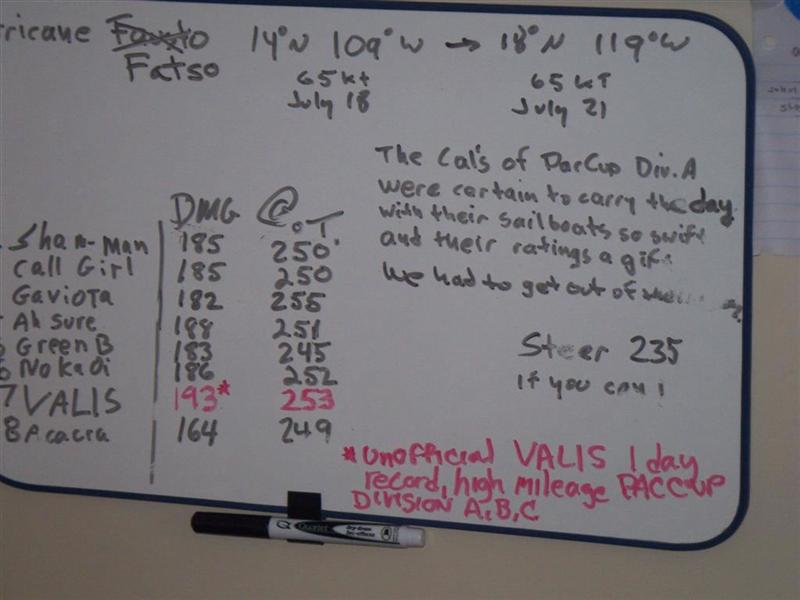 rricane Fausto 14°N 109°W → 18°N 119°W
Fatso
65 kt 65 kT
July 18 July 21
The Cal's of ParCup Div. A
were certain to carry the day
with their sailboats so swift
and their ratings a gift
We had to get out of
DMG @ °T
Sham-man 185 250
Call Girl 185 250
Gaviota 182 255
Ah Sure 188 251
Green B 183 245
Nokaoi 186 252
7 VALIS 193* 253
8 Acacia 164 249
Steer 235
if you can!
*Unofficial VALIS 1 day
record, high mileage PACCUP
Division A,B,C
Quartet